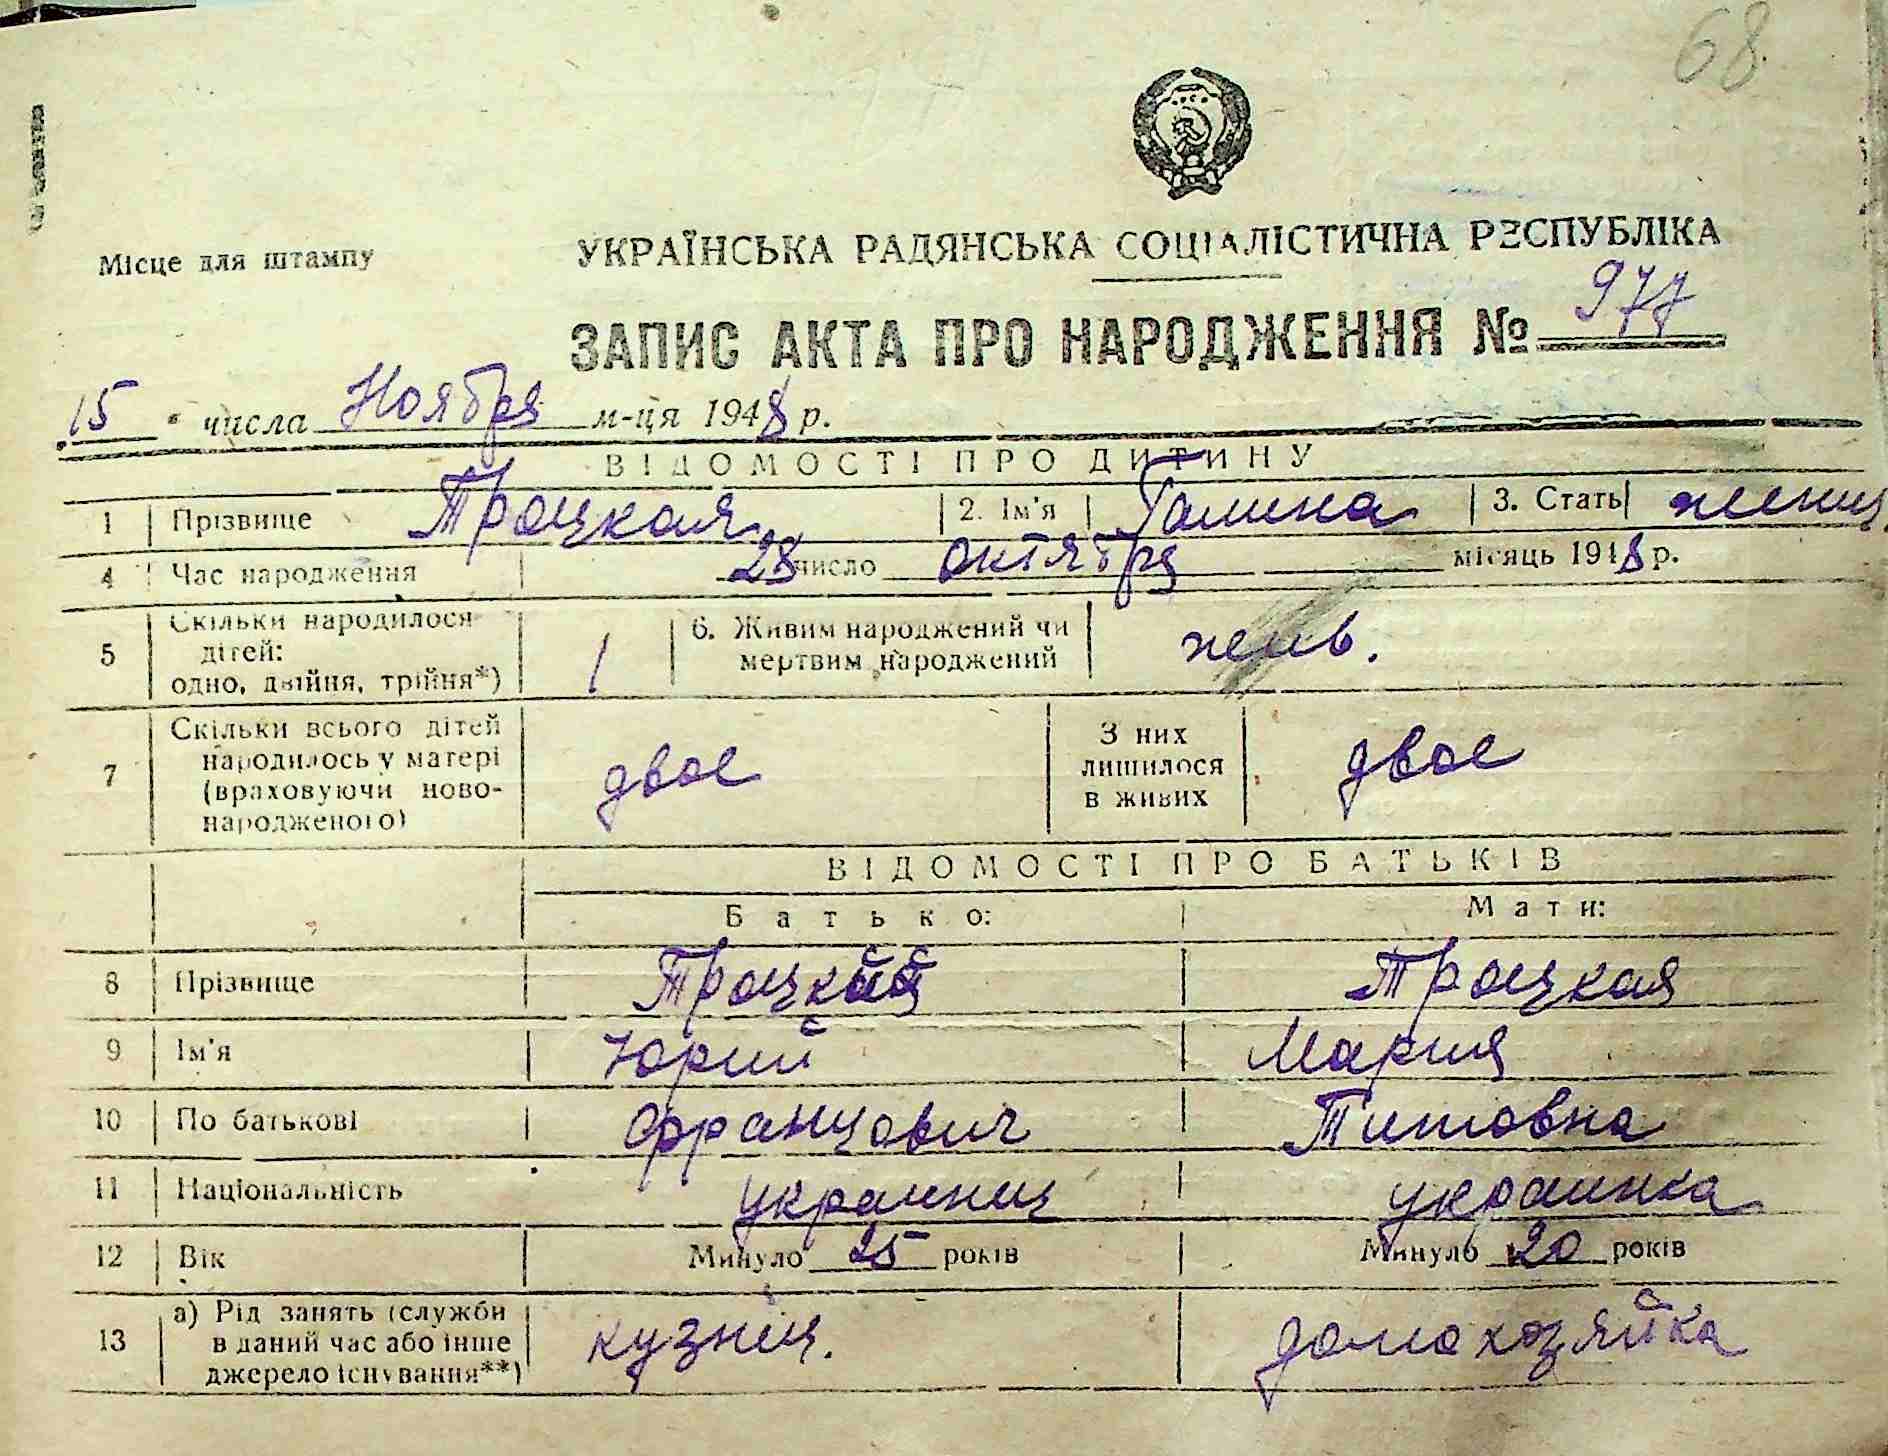 68
Місце для штампу
УКРАЇНСЬКА РАДЯНСЬКА СОЦІАЛІСТИЧНА РЕСПУБЛІКА
ЗАПИС АКТА ПРО НАРОДЖЕННЯ № 977
15 числа Ноября м-ця 1948 р.
ВІДОМОСТІ ПРО ДИТИНУ
1 Прізвище Троцкая 2. Ім'я Галина 3. Стать женщ.
4 Час народження 28 число октября місяць 1948 р.
5 Скільки народилося дітей: одно, двійня, трійня*) 1 6. Живим народжений чи мертвим народжений жив.
7 Скільки всього дітей народилось у матері (враховуючи ново-народженого) двое З них лишилося в живих двое
ВІДОМОСТІ ПРО БАТЬКІВ
Батько: Мати:
8 Прізвище Троцкий Троцкая
9 Ім'я Юрий Мария
10 По батькові Францович Титовна
11 Національність украинец украинка
12 Вік Минуло 25 років Минуло 20 років
13 а) Рід занять (служби в даний час або інше джерело існування**) кузнец. домохозяйка